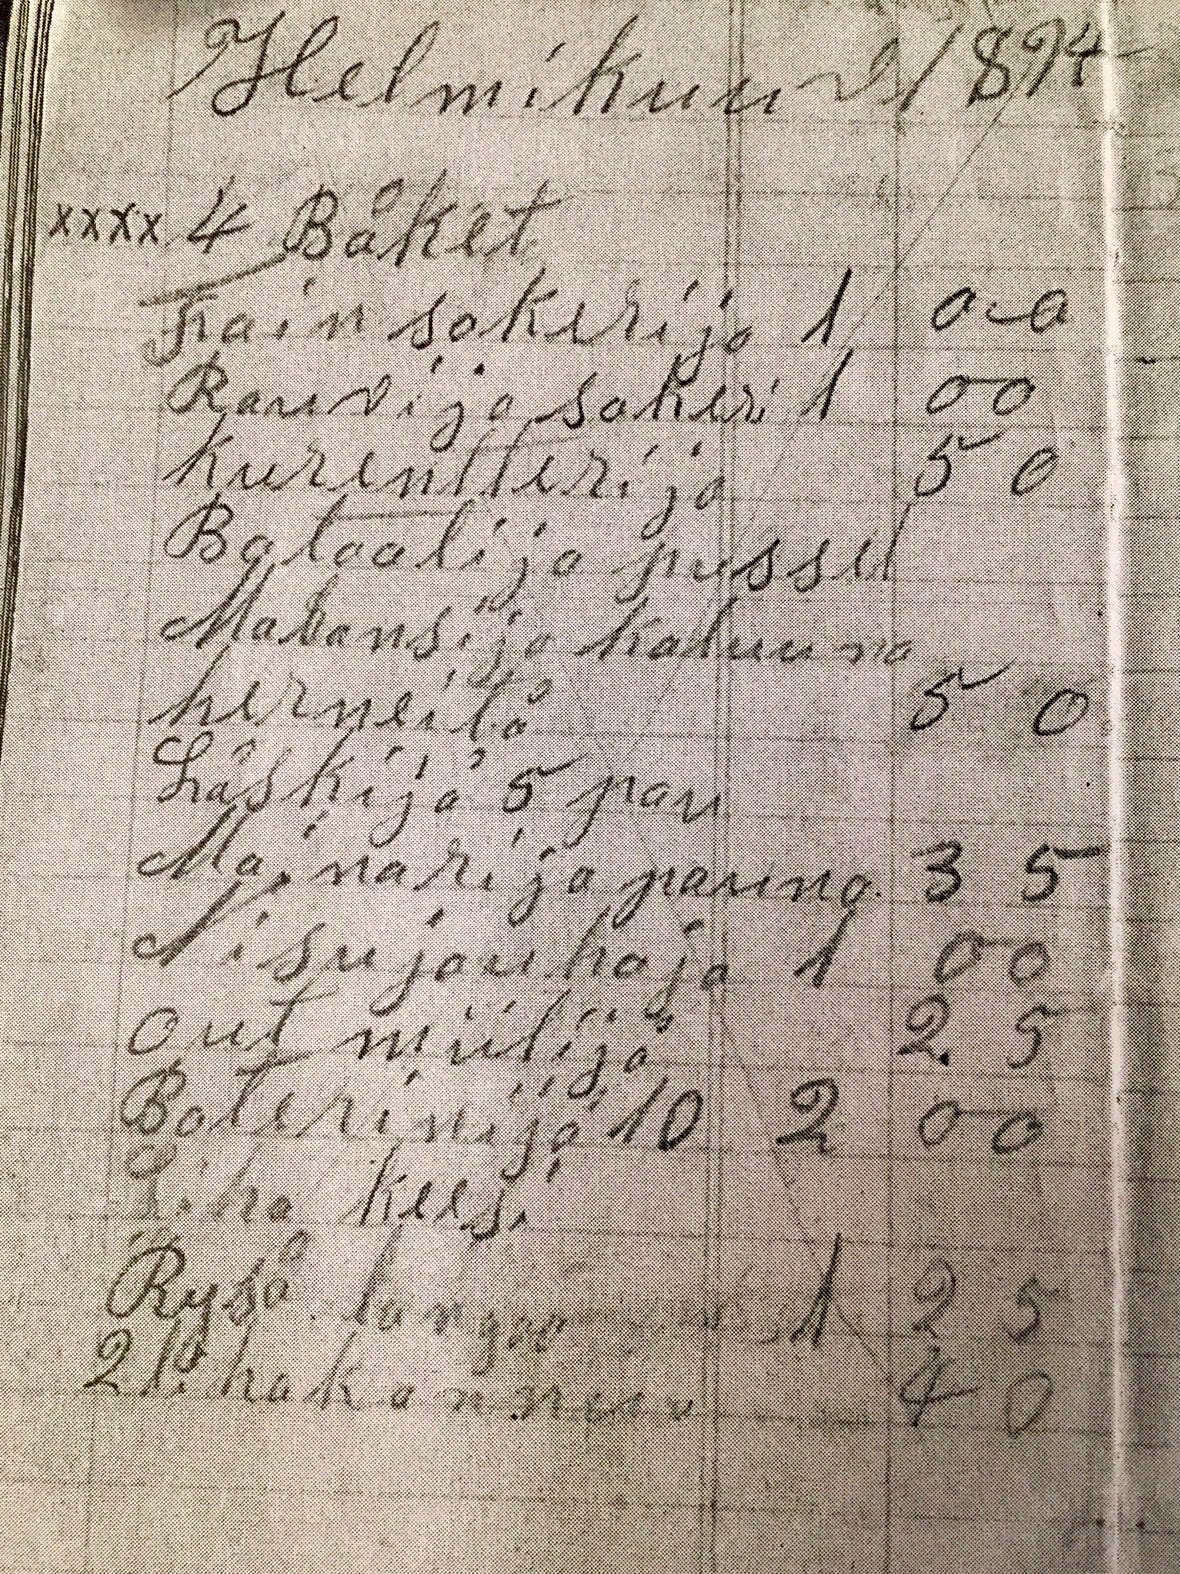 Helmikuu 2/1894
xxxx 4 Båket
Frain sokerija 1 00
Rauvija sokeri 1 00
kurentterija 50
Bataalija pussil
Makansija kaluuna
herneitå 50
Låskijå 5 pau
Mainarija pauna 35
Nisujauhoja 1 00
Out miilijå 25
Baterinijå 10 2 00
Liha keesi
Ryså 1 25
2 40